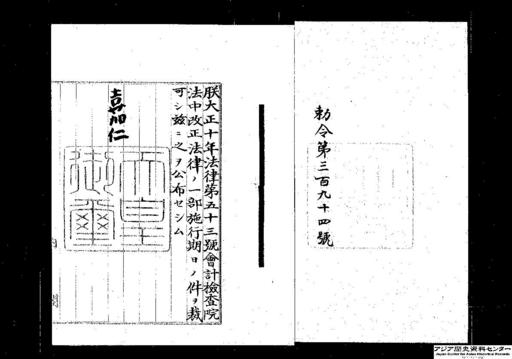 勅令第三百九十四號
朕大正十年法律第五十三號會計檢査院
法中改正法律ノ一部施行期日ノ件ヲ裁
可シ玆ニ之ヲ公布セシム
嘉仁
天皇御璽
アジア歴史資料センター
Japan Center for Asian Historical Records